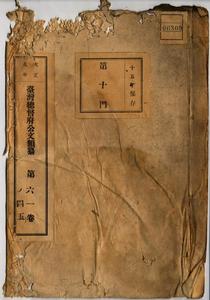 00309
十五年保存
第十門
大正
臺灣總督府公文類纂
第六一卷
ノ四五